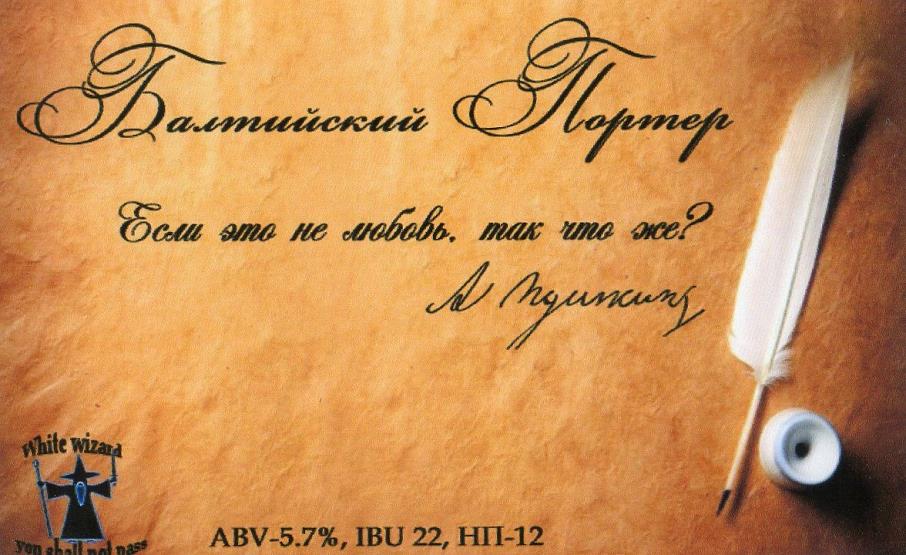 Балтийский Портер
Если это не любовь, так что же?
А Пушкинъ
White wizard
you shall not pass
ABV-5.7%, IBU 22, НП-12